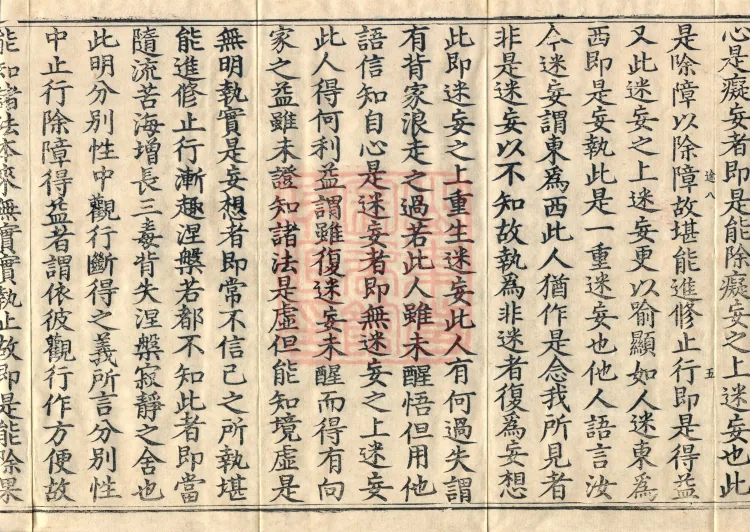 心是癡妄者即是能除癡妄之上迷妄也此
是除障以除障故堪能進修止行即是得益
又此迷妄之上迷妄更以喻顯如人迷東為
西即是妄執此是一重迷妄也他人語言汝
今迷妄謂東為西此人猶作是念我所見者
非是迷妄以不知故執為非迷者復為妄想
此即迷妄之上重生迷妄此人有何過失謂
有背家浪走之過若此人雖未醒悟但用他
語信知自心是迷妄者即無迷妄之上迷妄
此人得何利益謂雖復迷妄未醒而得有向
家之益雖未證知諸法是虛但能知境虛是
無明執實是妄想者即常不信己之所執堪
能進修止行漸趣涅槃若都不知此者即當
隨流苦海增長三毒背失涅槃寂靜之舍也
此明分別性中觀行斷得之義所言分別性
中止行除障得益者謂依彼觀行作方便故
能知諸法本來無實實執止故即是能除果
五